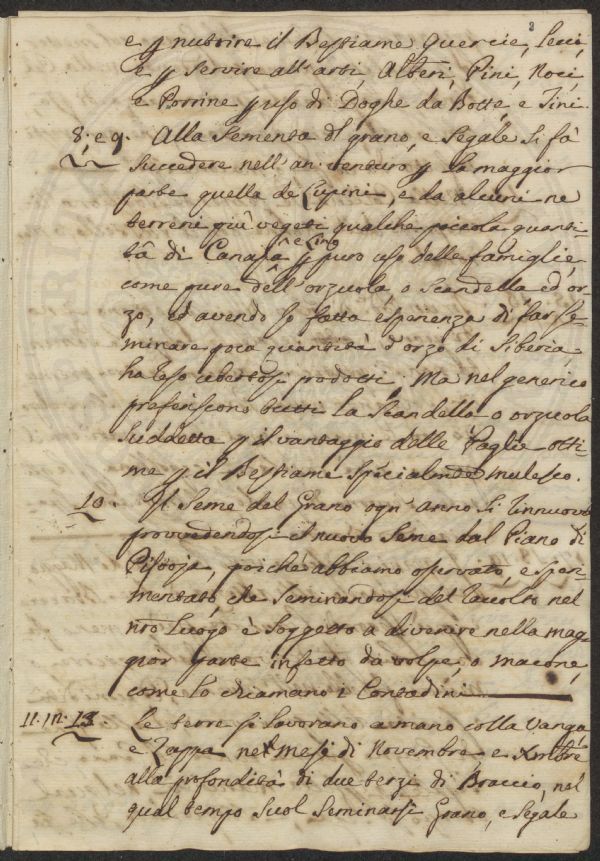 8
e p nutrire il Bestiame Quercie, Lecci,
e p servire all'arti, Alberi, Pini, Noci,
e Porrine p uso di Doghe da Botte, e Tini.
8. e 9. Alla Sementa dl grano, e Segale si fà
succedere nell'an. venturo p la maggior
parte quella de Lupini, e da alcuni ne
terreni più vegeti qualche piccola quanti-
tà di Canapa e Lino p puro uso delle famiglie
come pure dell'orzuola, o Scandella ed or-
zo, ed avendo Io fatta esperienza di far se-
minare poca quantità d'orzo di Siberia
ha reso ubertosi prodotti; Ma nel generico
preferiscono tutti la Scandella o orzuola
suddetta p il vantaggio delle Paglie otti-
me p il Bestiame specialmte mulesco.
10. Il Seme del Grano ogn'anno si rinnuova
provvedendosi il nuovo seme dal Piano di
Pistoja, poiché abbiamo osservato, e speri-
mentato, che seminandosi del raccolto nel
nro Luogo è soggetto a divenire nella mag-
gior parte infetto da volpe, o macone,
come lo chiamano i Contadini
11. 12. 13. Le terre si lavorano a mano colla Vanga,
e Zappa ne mesi di Novembre e Xmbre
alla profondità di due terzi di Braccio, nel
qual tempo suol seminarsi Grano, e Segale